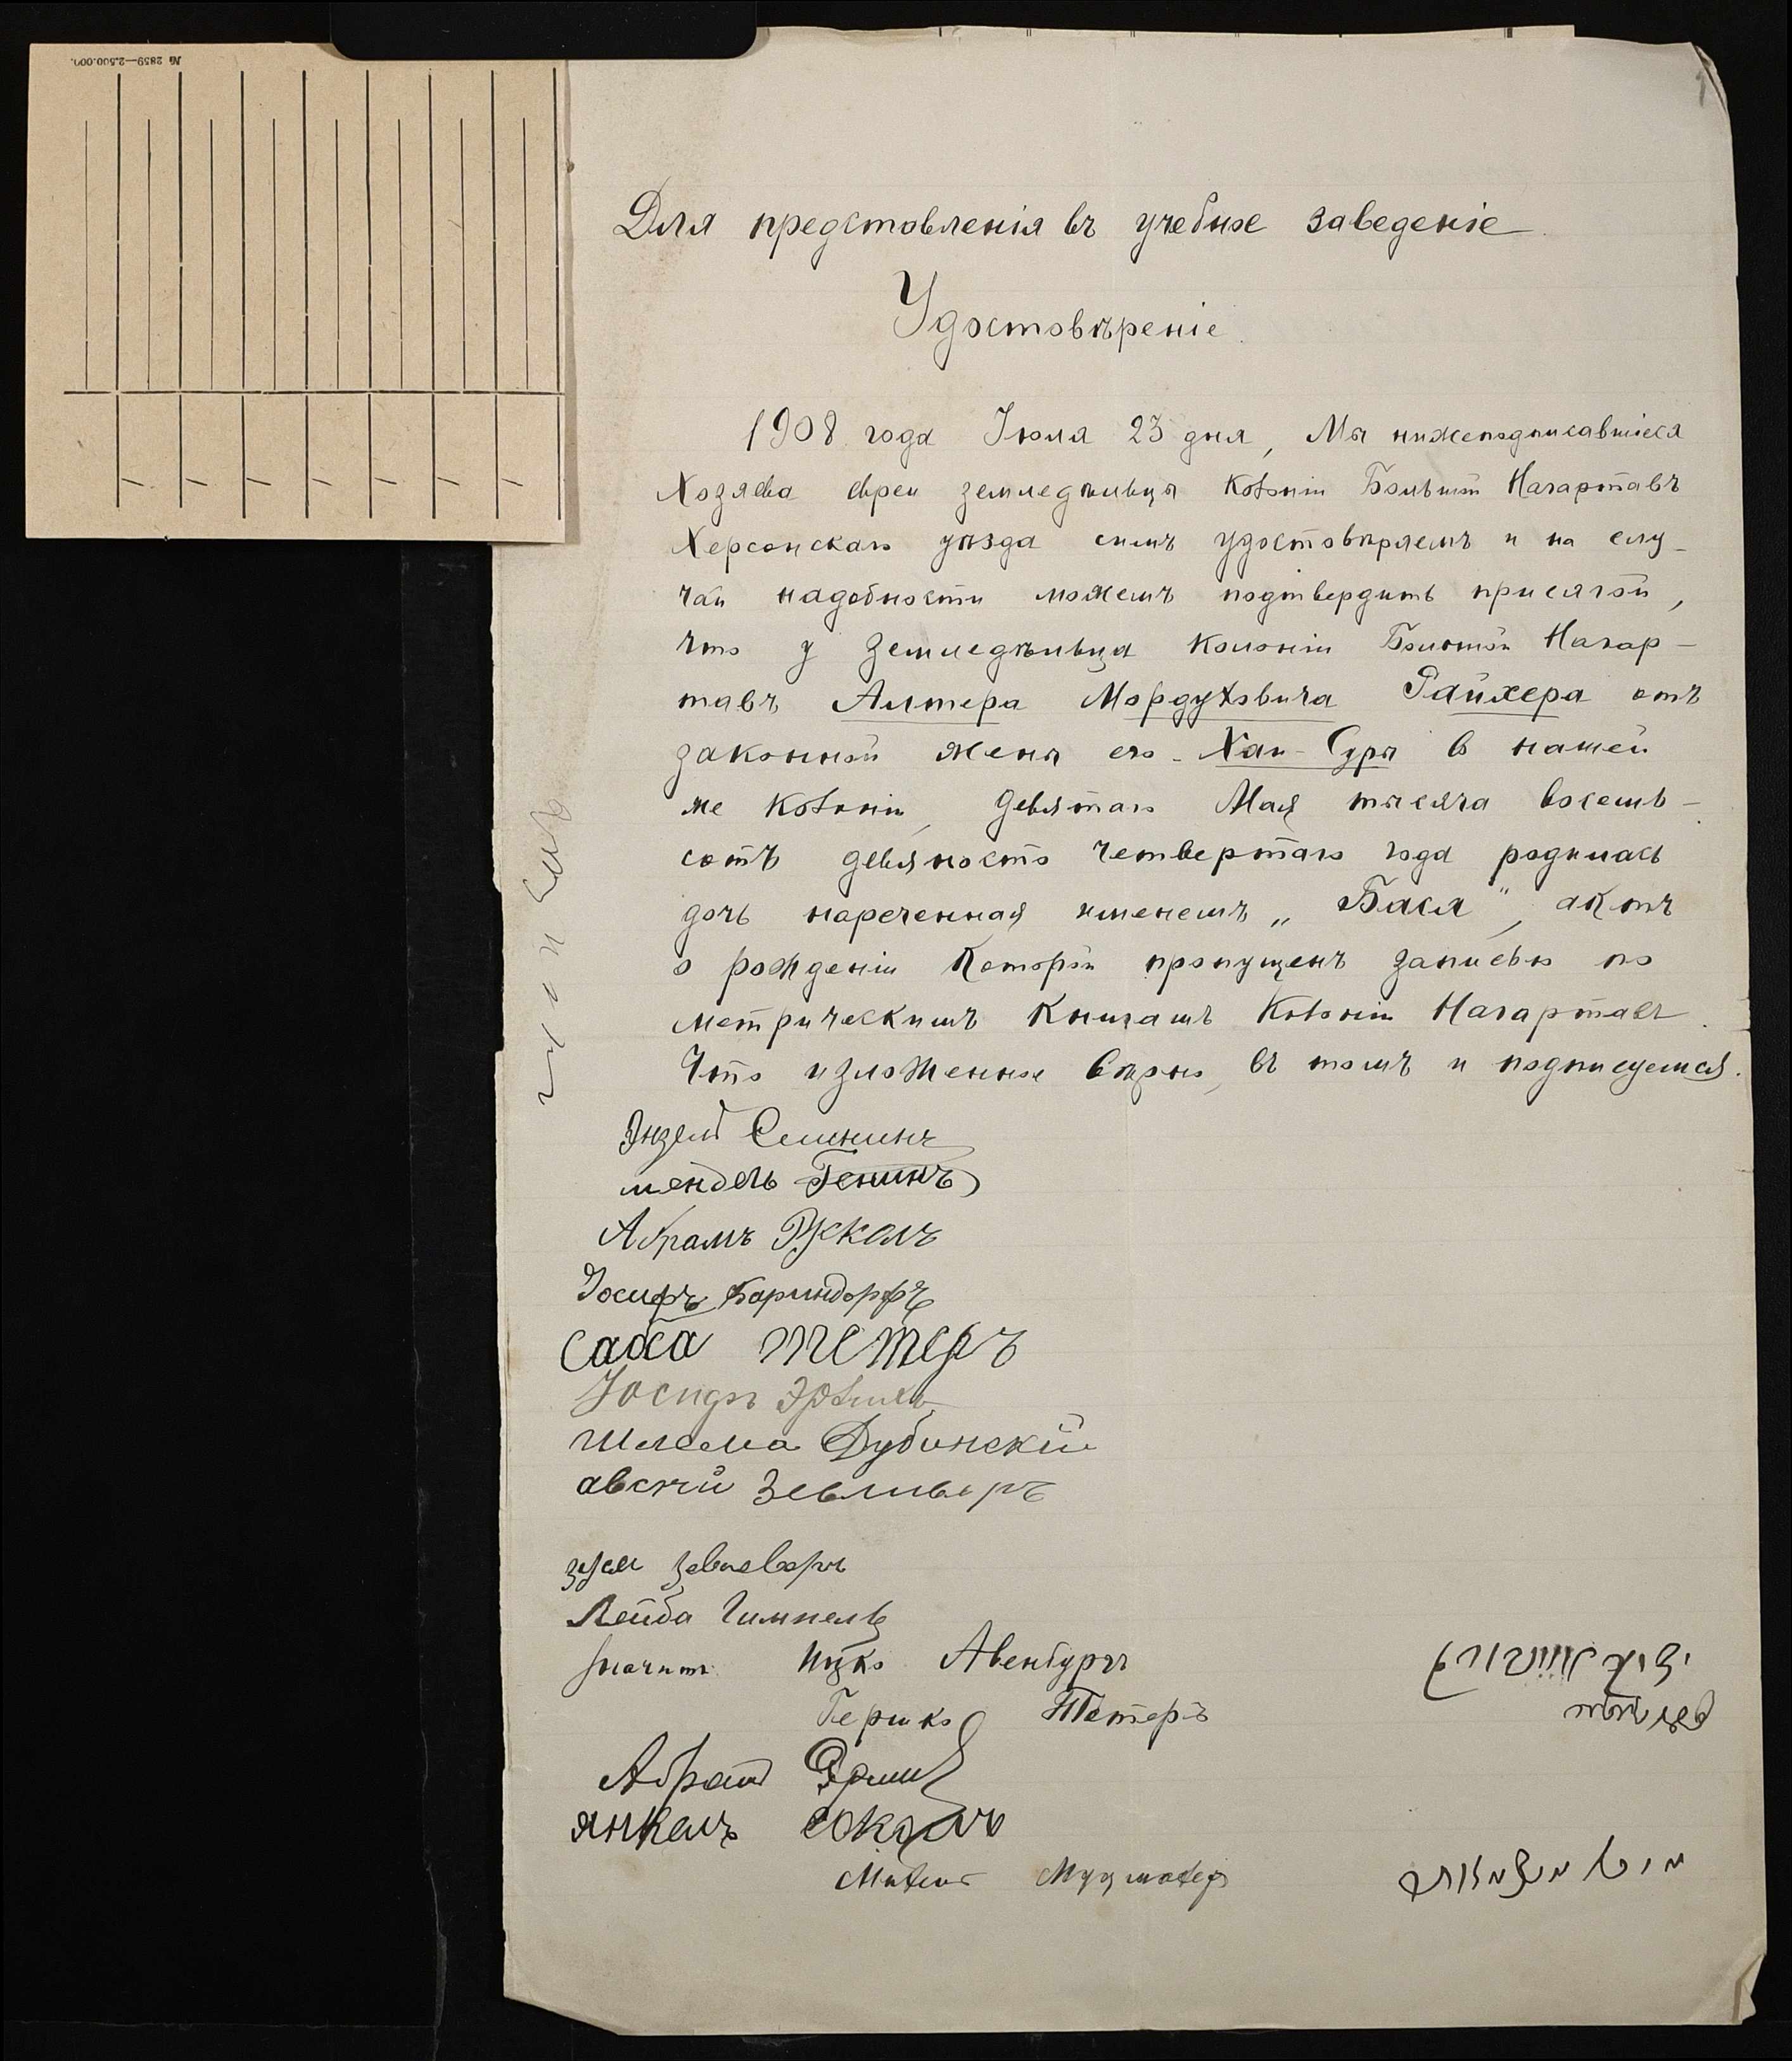 № 2859—2.500.000.
Для представленія въ учебное заведеніе
Удостовѣреніе
1908 года Іюля 23 дня, Мы нижеподписавшіеся
Хозяева евреи земледѣльцы колоніи Большой Нагартавъ
Херсонскаго уѣзда симъ удостовѣряемъ и на слу-
чай надобности можемъ подтвердить присягой,
что у земледѣльца колоніи Большой Нагар-
тавъ Алтера Мордуховича Райхера отъ
законной жены его Хаи-Суры в нашей
же колоніи, Девятаго Мая тысяча восемь-
сотъ девяносто четвертаго года родилась
дочь нареченная именемъ „Бася", актъ
о рожденіи которой пропущенъ записью по
метрическимъ книгамъ колоніи Нагартавъ.
Что изложенное вѣрно, въ томъ и подписуемся.
Семининъ
мендель Генинъ
Абрамъ Русколъ
Іосифъ Бариндорфъ
саха тетеръ
Іосифъ
Шлема Дубинскій
авсей Зевливеръ
Лейба Гимпель
значитъ Ицко Авенбургъ
Гершко Тетеръ
Абрам
Янкель соколъ